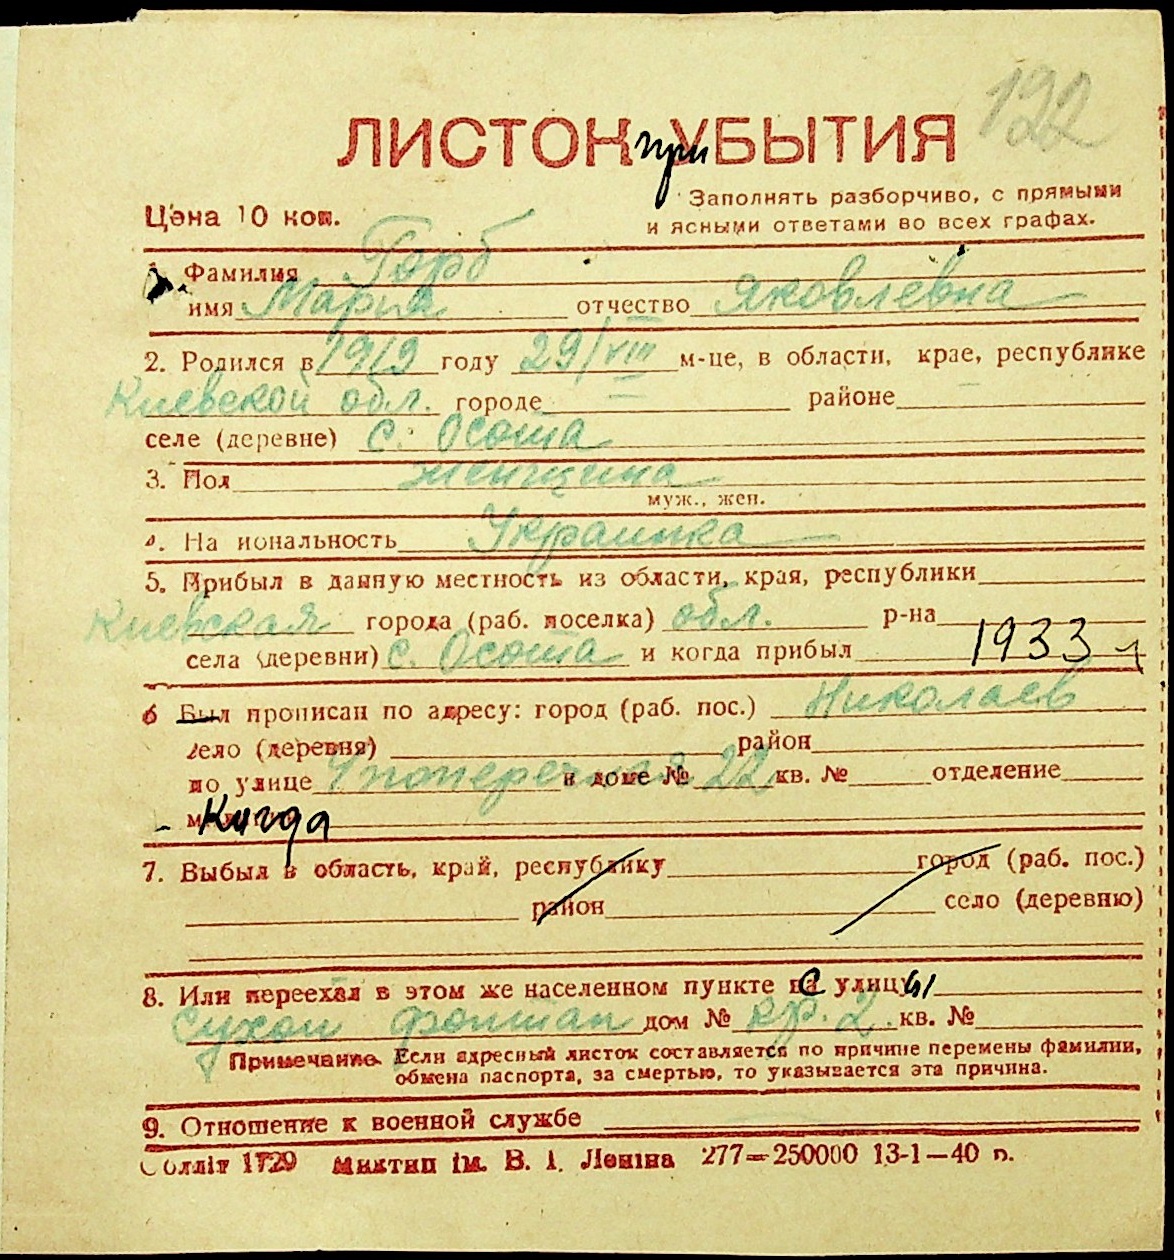 122
ЛИСТОК при УБЫТИЯ
Цена 10 коп.
Заполнять разборчиво, с прямыми
и ясными ответами во всех графах.
1. Фамилия Горб
имя Мария отчество Яковлевна
2. Родился в 1919 году 29/VIII м-це, в области, крае, республике
Киевской обл. городе — районе —
селе (деревне) с. Осота
3. Пол женщина
муж., жен.
4. На иональность Украинка
5. Прибыл в данную местность из области, края, республики
Киевская города (раб. поселка) обл. р-на
села (деревни) с. Осота и когда прибыл 1933 г
6 Был прописан по адресу: город (раб. пос.) Николаев
село (деревня) район
по улице 4 поперечная в доме № 22 кв. № отделение
Когда
7. Выбыл в область, край, республику город (раб. пос.)
район село (деревню)
8. Или переехал в этом же населенном пункте с улицы
Сухой фонтан дом № кр. 2. кв. №
Примечание. Если адресный листок составляется по причине перемены фамилии,
обмена паспорта, за смертью, то указывается эта причина.
9. Отношение к военной службе
Обллiт 1729 Миктип iм. В. I. Ленiна 277—250000 13-1—40 р.